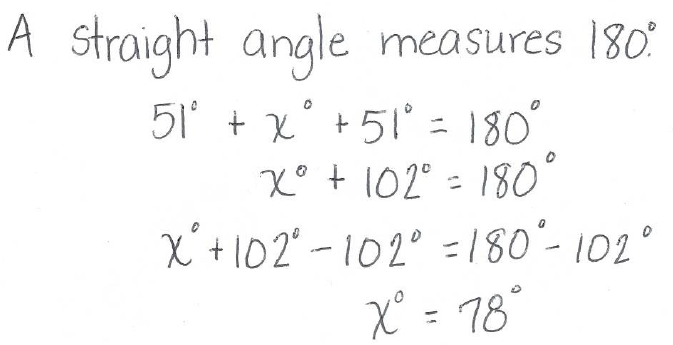 A straight angle measures 180°.
51° + x° + 51° = 180°
x° + 102° = 180°
x° + 102° - 102° = 180° - 102°
x° = 78°